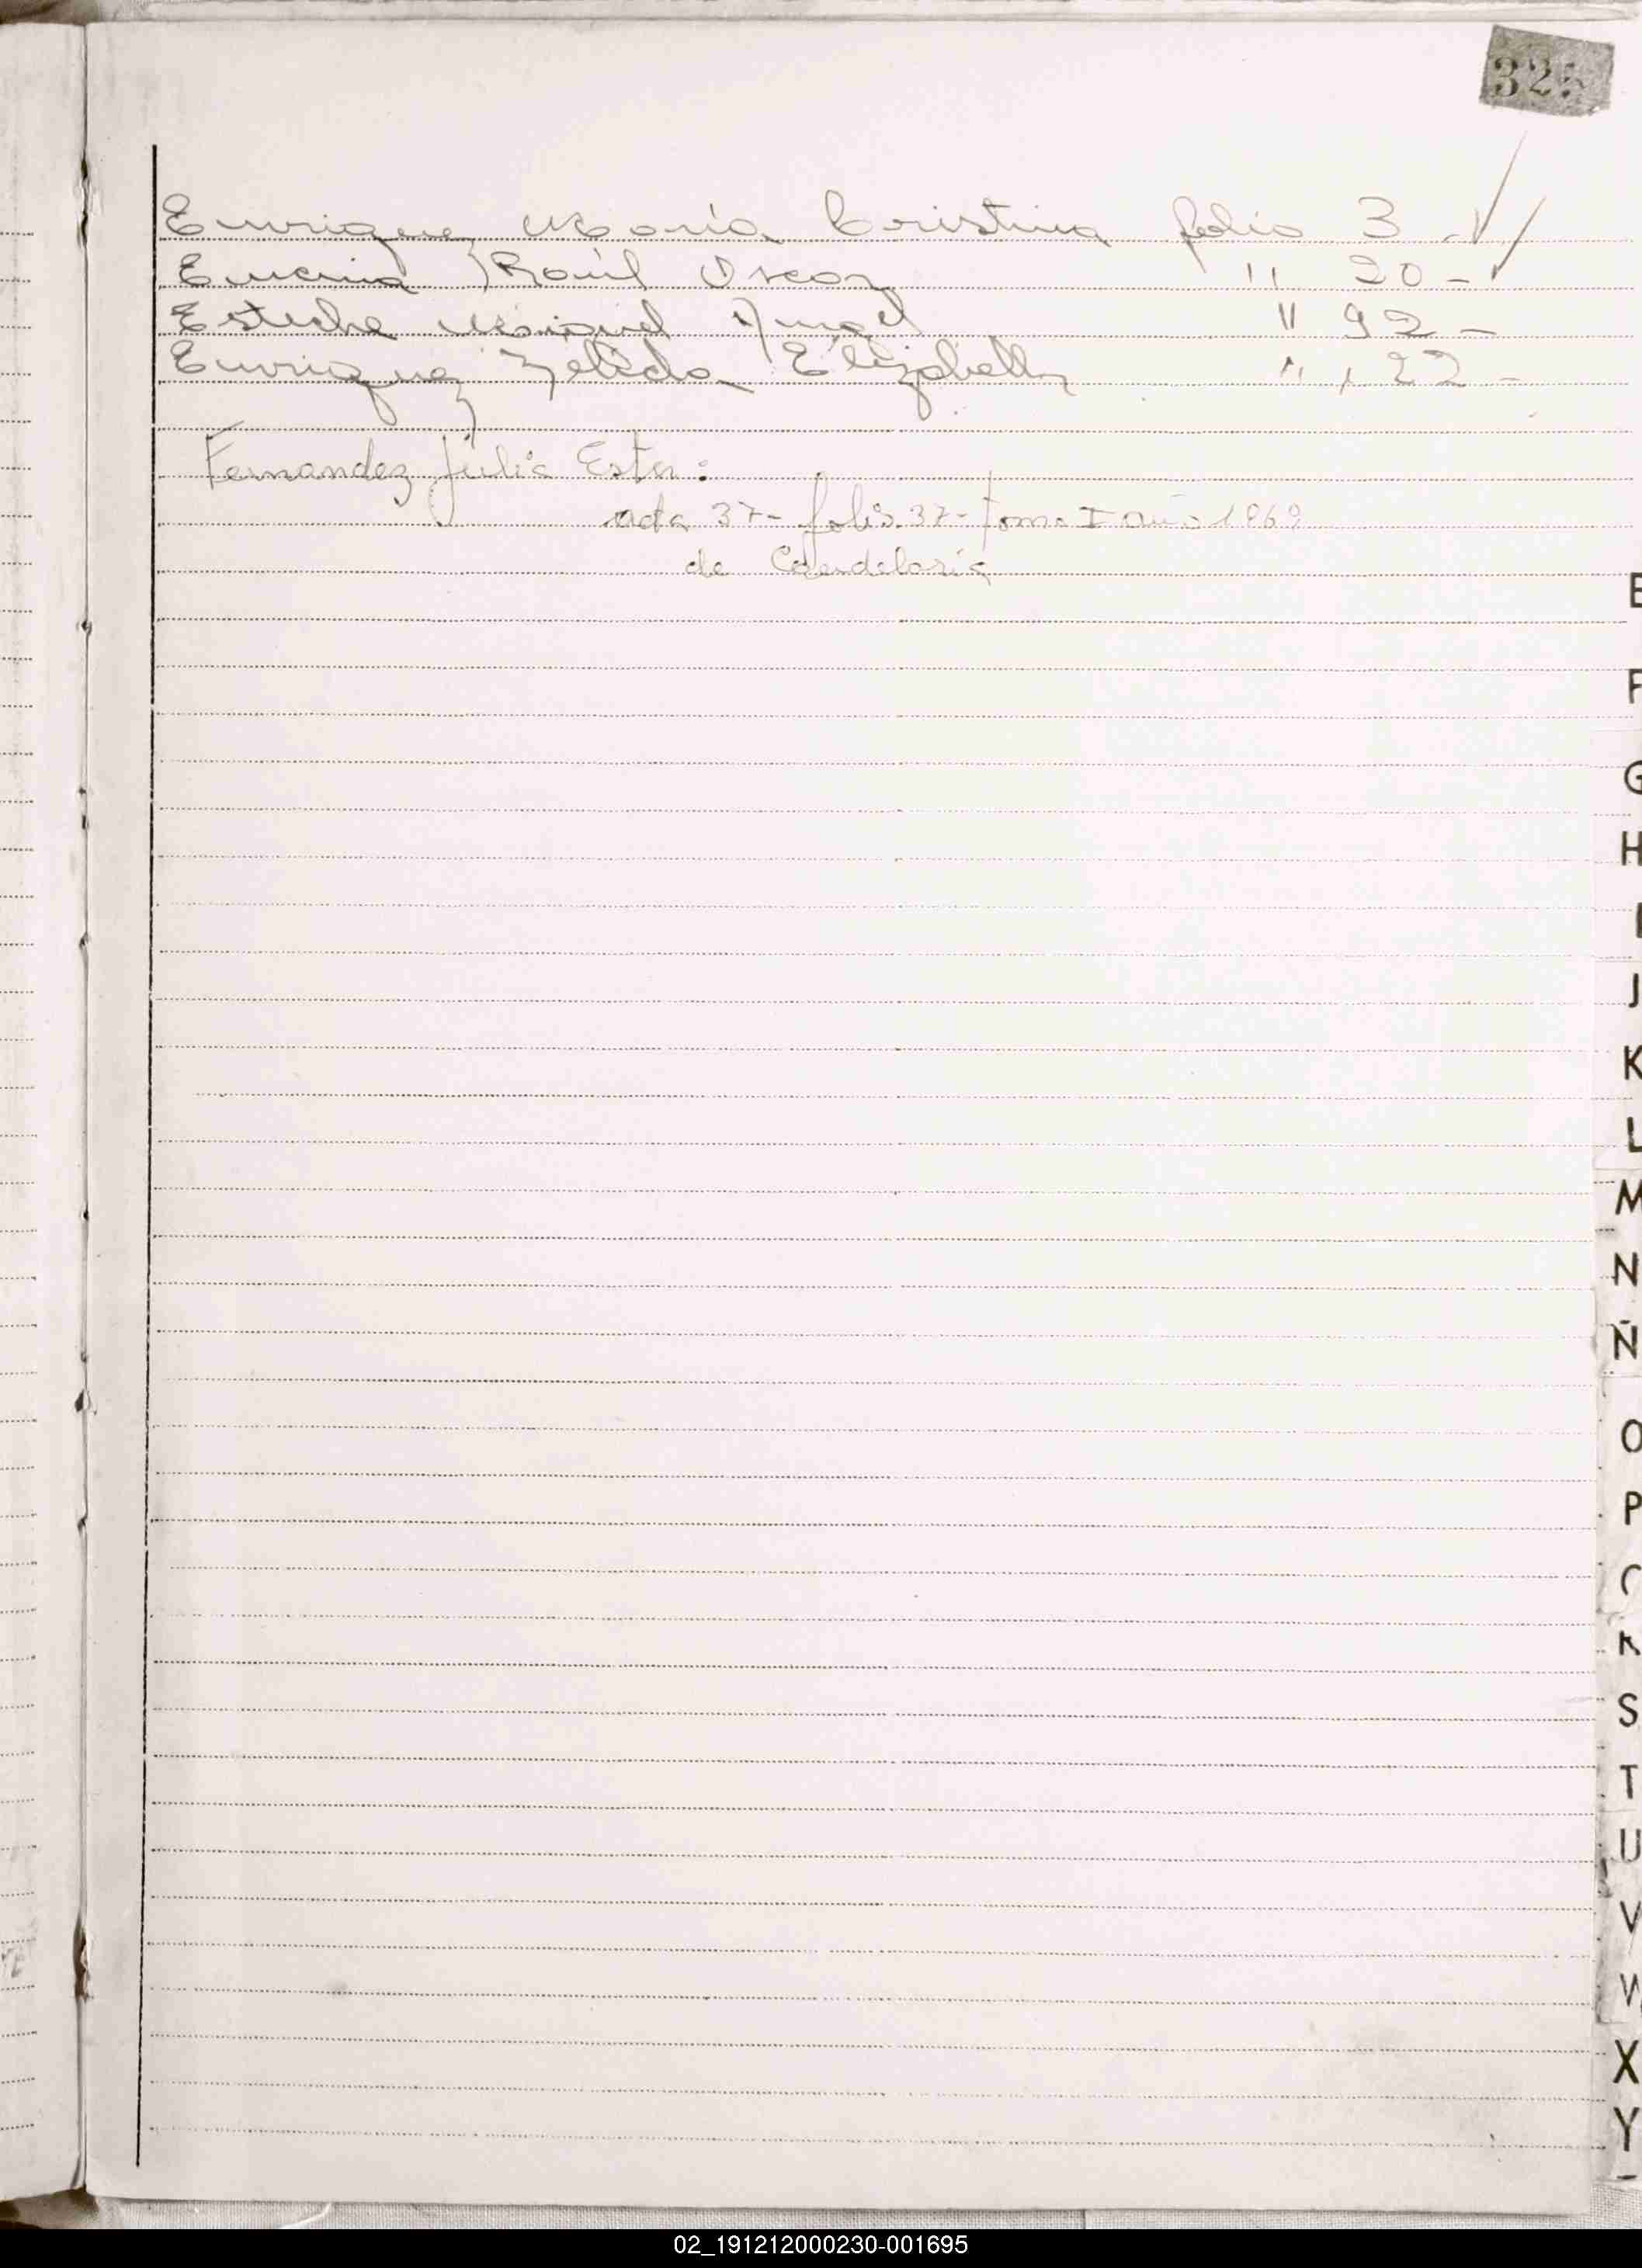 325
Enriquez María Cristina folio 3 -
Raúl Oscar " 20 -
Esteche Miguel Angel " 92 -
Enriquez Zelida Elizabeth " 22 -
Fernandez Julia Ester:
acta 37- folio 37- tomo I año 1969
de Candelaria
E
F
G
H
I
J
K
L
M
N
Ñ
O
P
Q
R
S
T
U
V
W
X
Y
02_191212000230-001695